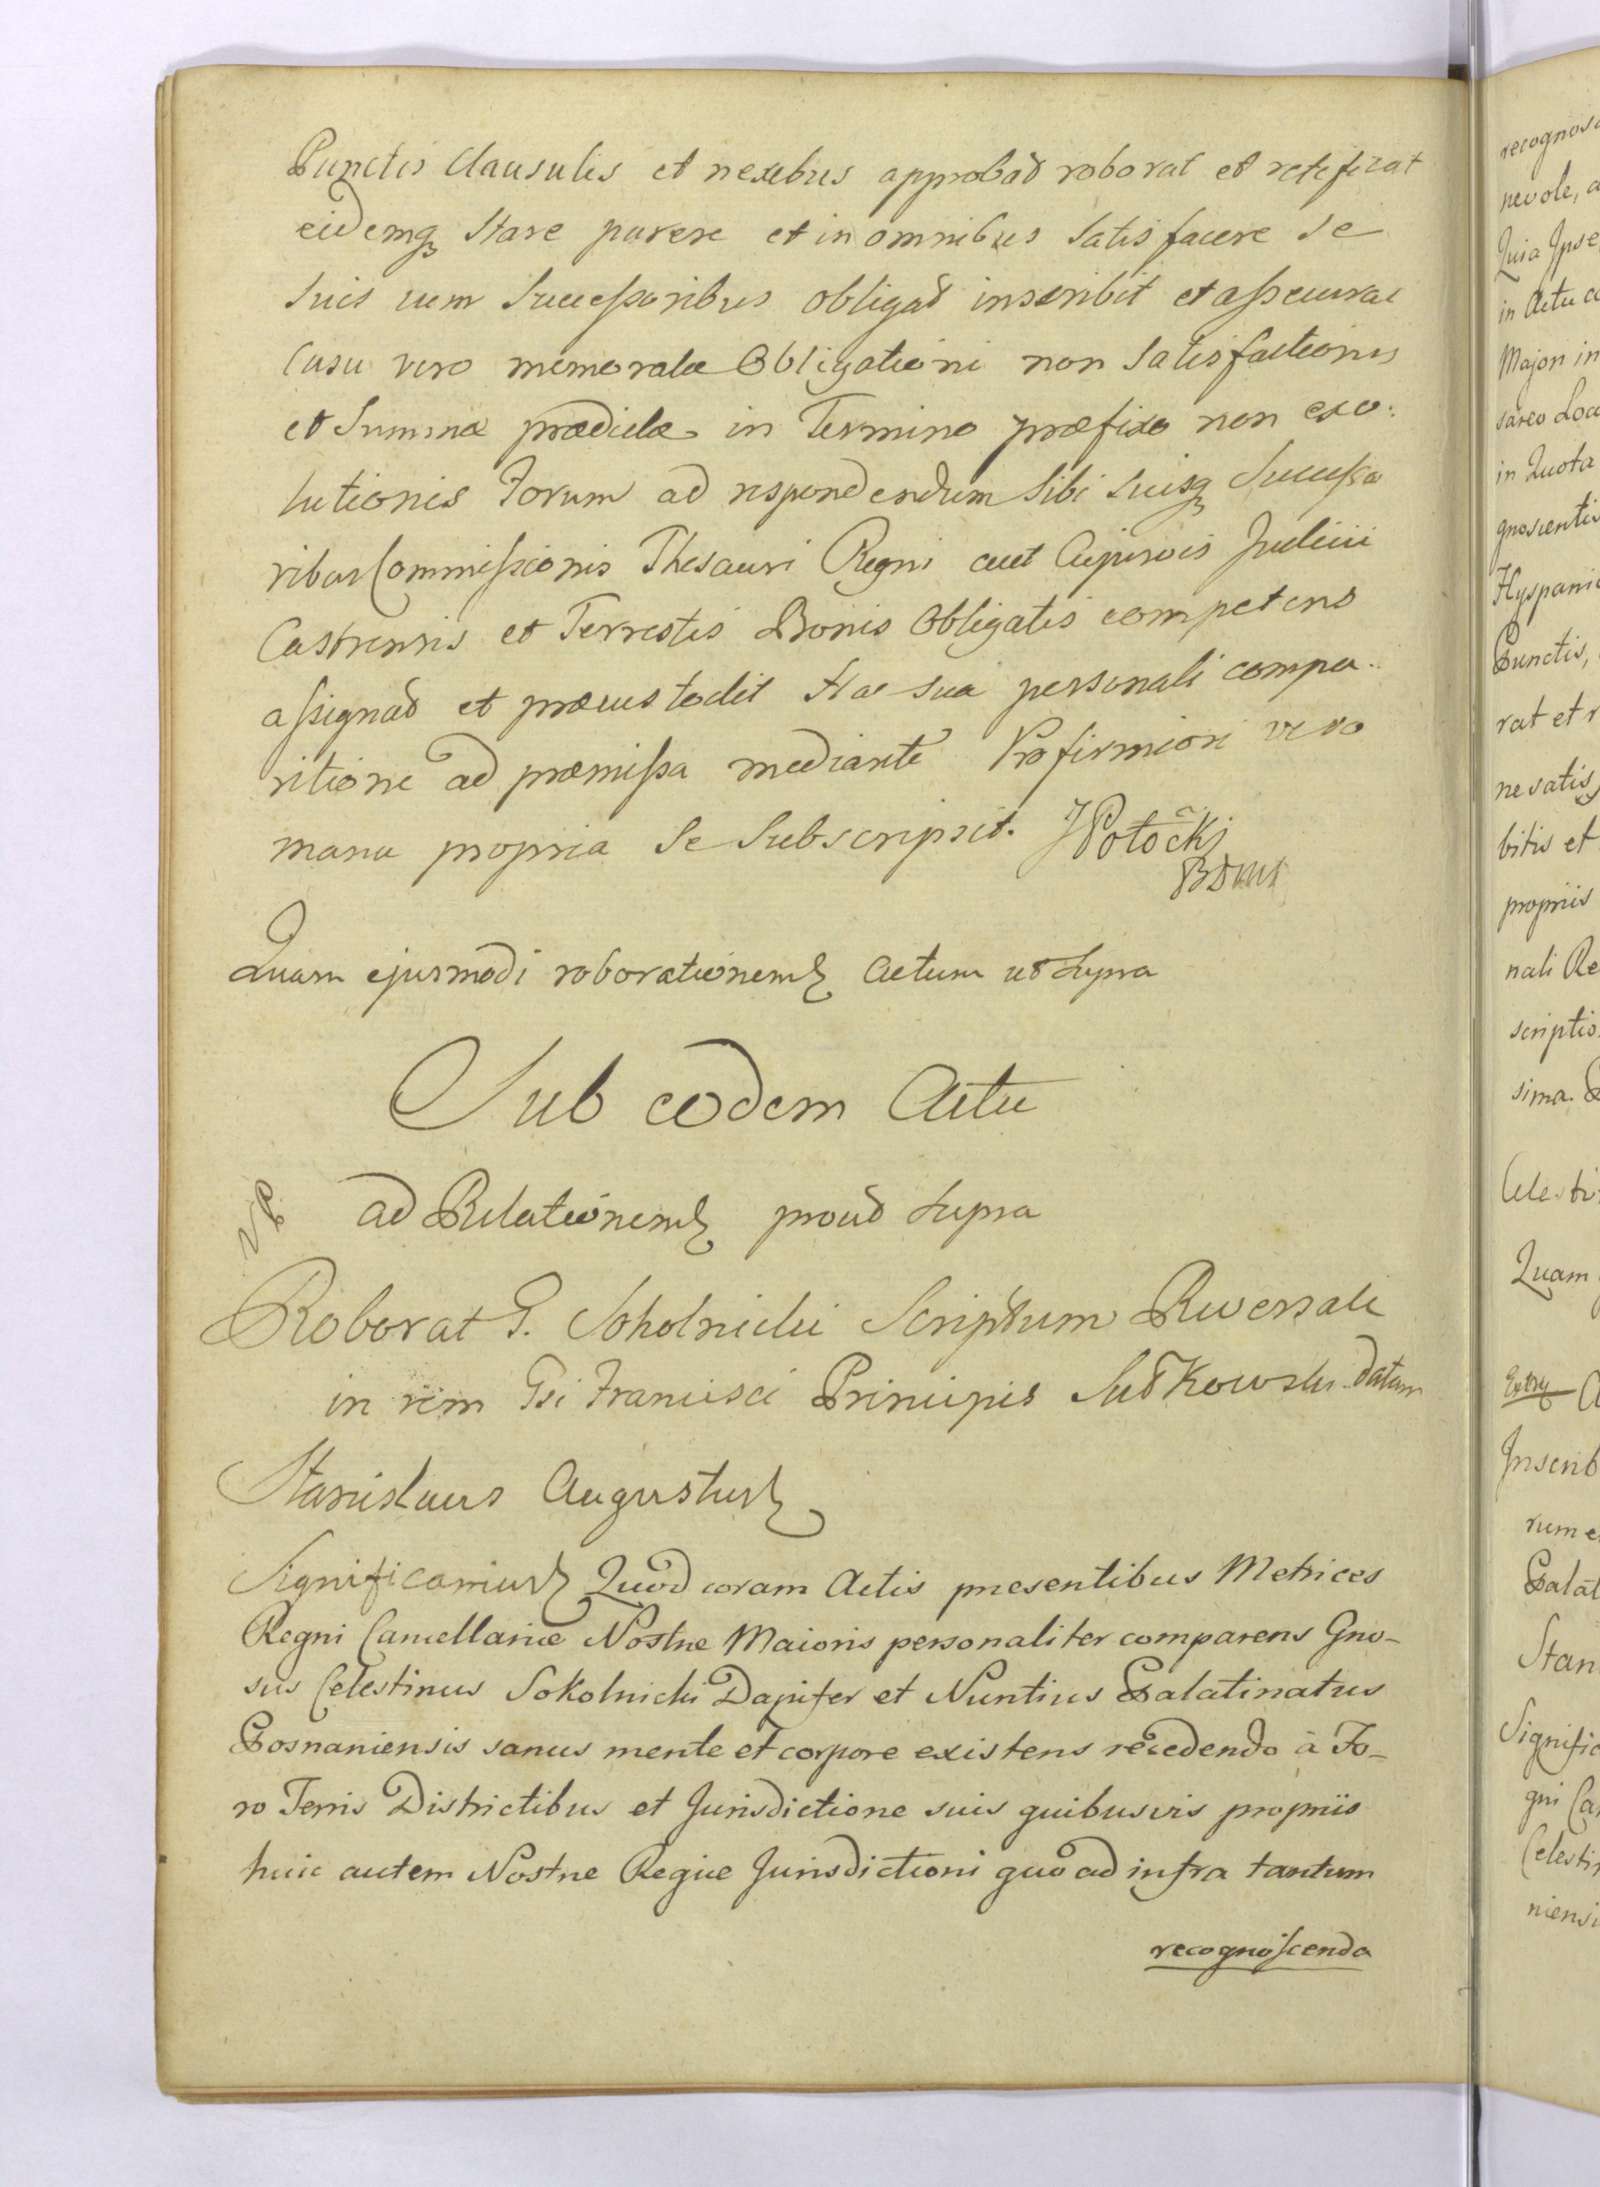 Punctis Clausulis et nexibus approbat roborat et ratificat
eidemq stare parere et in omnibus Satisfacere Se
Suis cum Successoribus obligat inscribit et assecurat
Casu vero memoratæ Obligationi non Satisfactionis
et Summæ prædictæ in Termino præfixo non exo:
lutionis Forum ad respondendum Sibi Suisq Successo
ribus Commissionis Thesauri Regni aut Cujusvis Judicii
Castrensis et Terrestis Bonis Obligatis competens
assignat et præcustodit Hac sua personali compa:
ritione ad præmissa mediante Pro firmiori vero
manu propria Se Subscripsit. J Potocki
Quam ejusmodi roborationem Actum ut Supra
Sub eodem Actu
VP.
ad Relationem prout Supra
Roborat G. Sokolnicki Scriptum Reversale
in rem Gsi Francisci Principis Sułkowski datum
Stanislaus Augustus
Significamus Quod coram Actis presentibus Metrices
Regni Cancellariæ Nostræ Maioris personaliter comparens Gno-
sus Celestinus Sokolnicki Dapifer et Nuntius Palatinatus
Posnaniensis sanus mente et corpore existens recedendo à Fo-
ro Terris Districtibus et Jurisdictione suis quibusvis propriis
huic autem Nostræ Regiæ Jurisdictioni quo ad infra tantum
recognoscenda
nevole, a
Quia Ipse
in Actu
Major in
in Quota
gnoscentis
Punctis,
rat et r
ne satis
bitis et
propriis
nali Re
scriptio
sima.
Celesti
Quam
Inscrib
rum e
Palat
Stan
Signific
gni Ca
Celesti
niensi